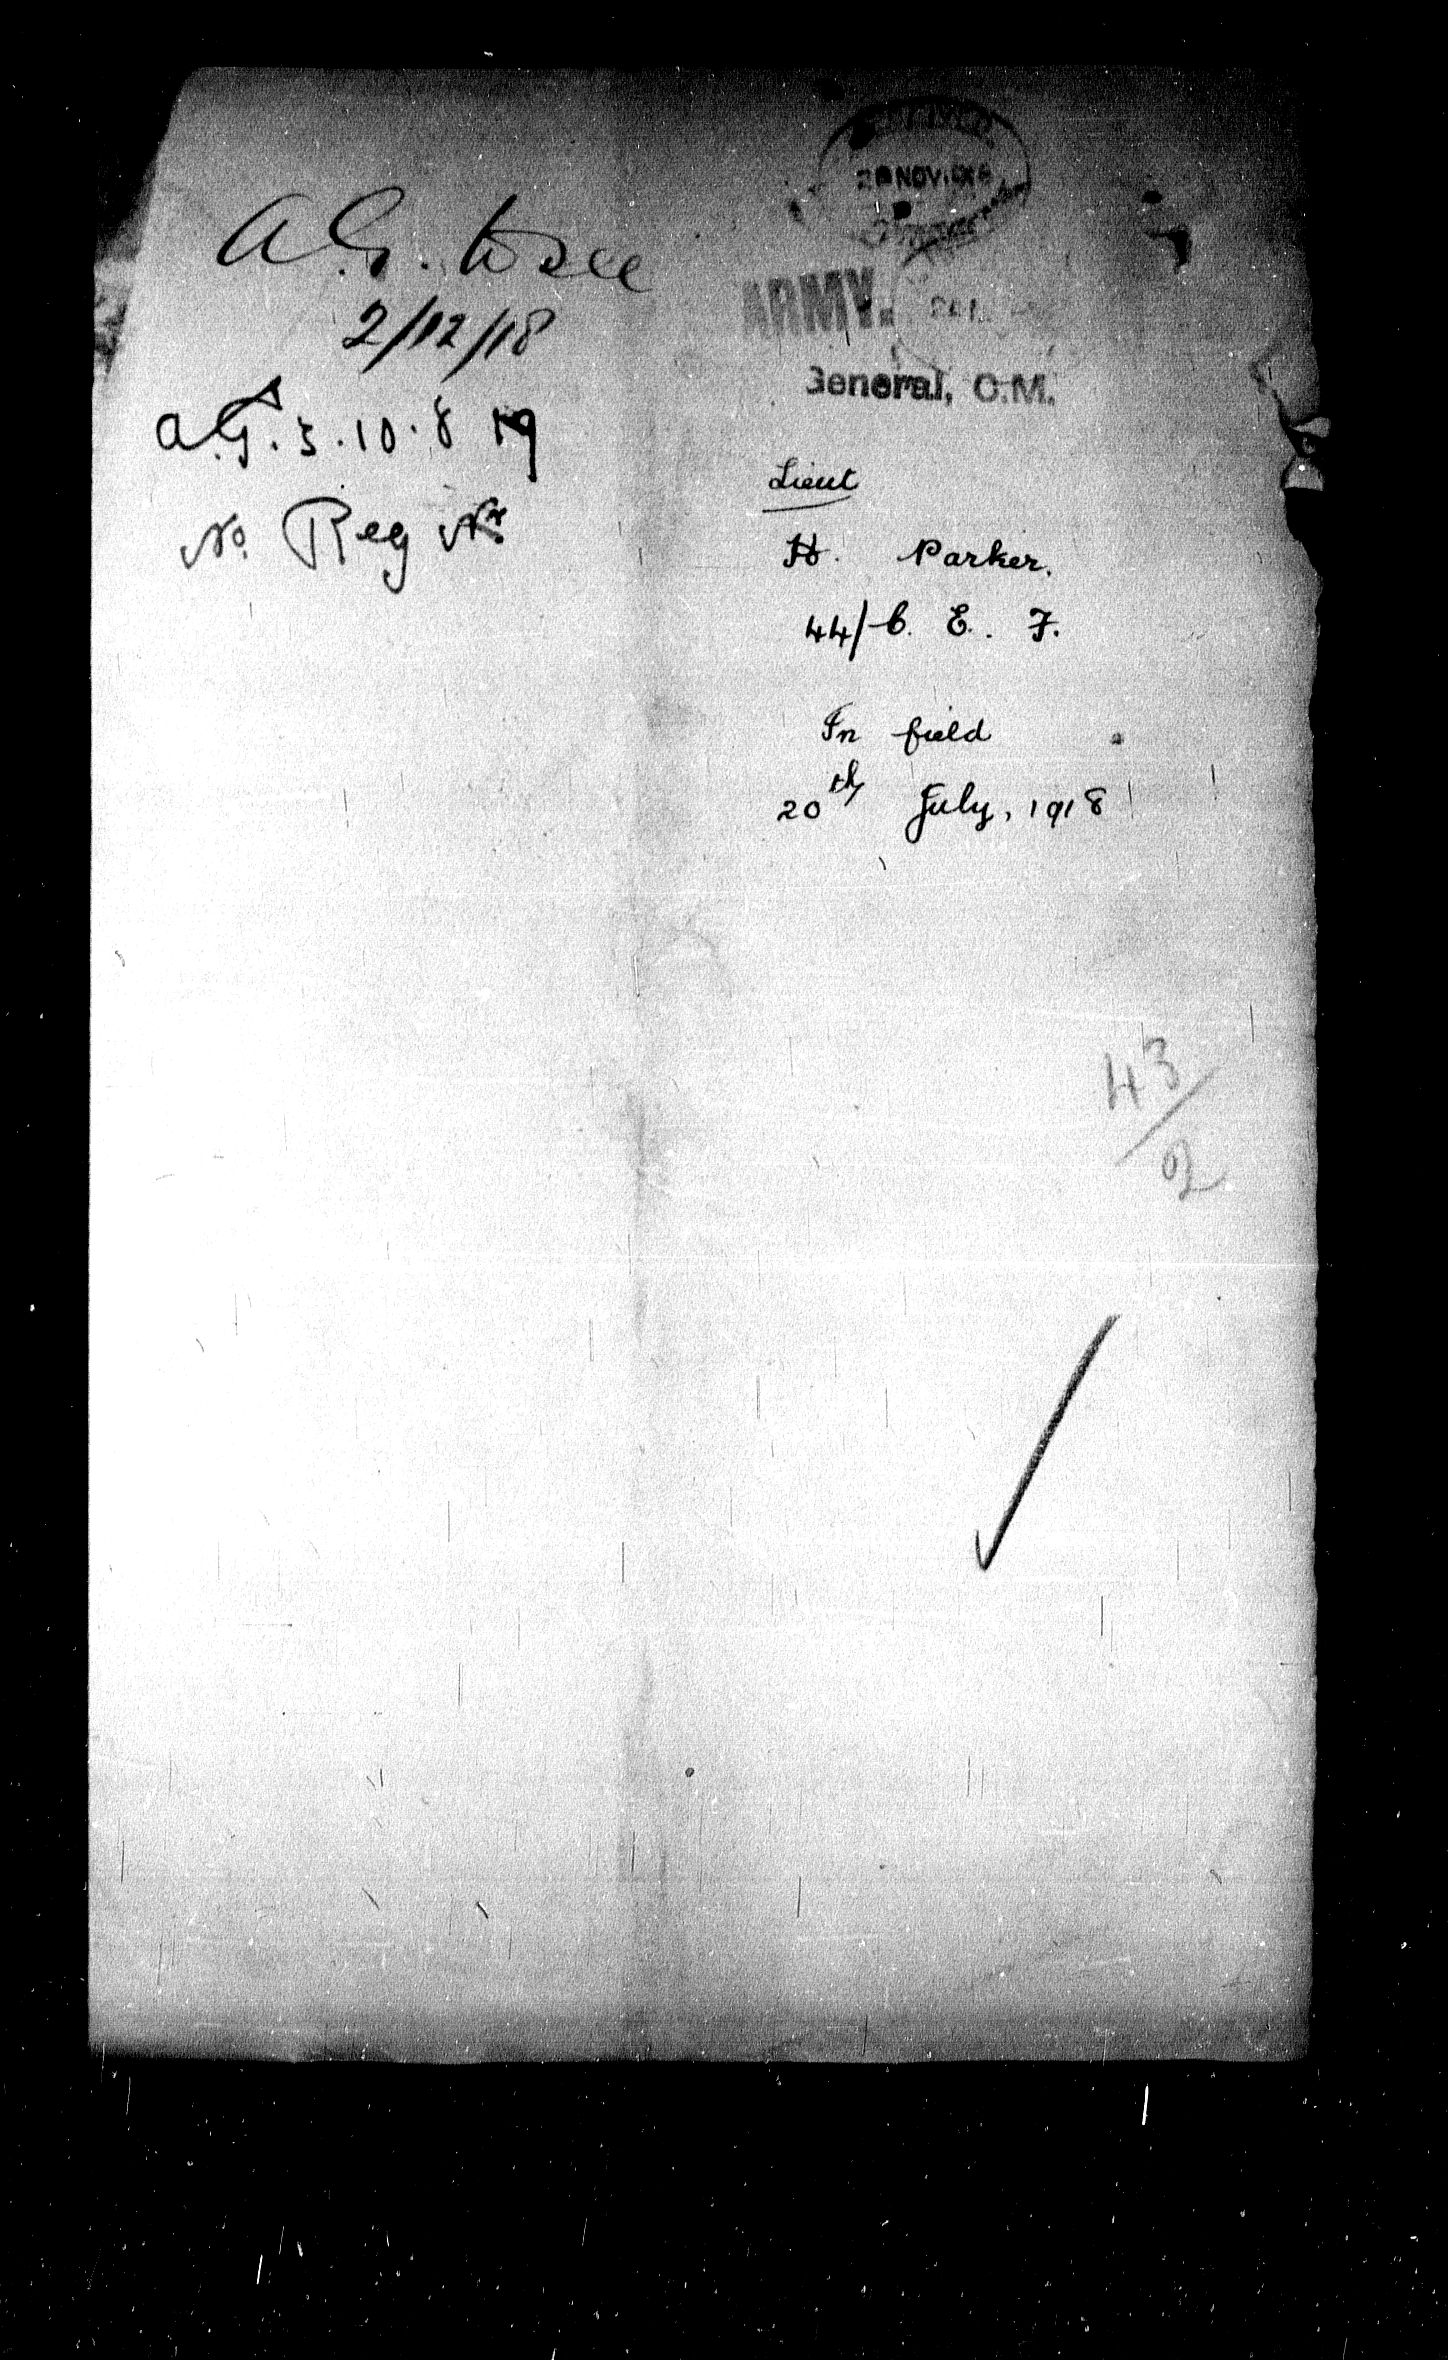 A.G.
2/12/18
A.G.3.10.8 19
No. Reg Nr
NOV.
ARMY.
General, C.M.
Lieut
H. Parker.
44/C. E. F.
In field
20th July, 1918
43/2